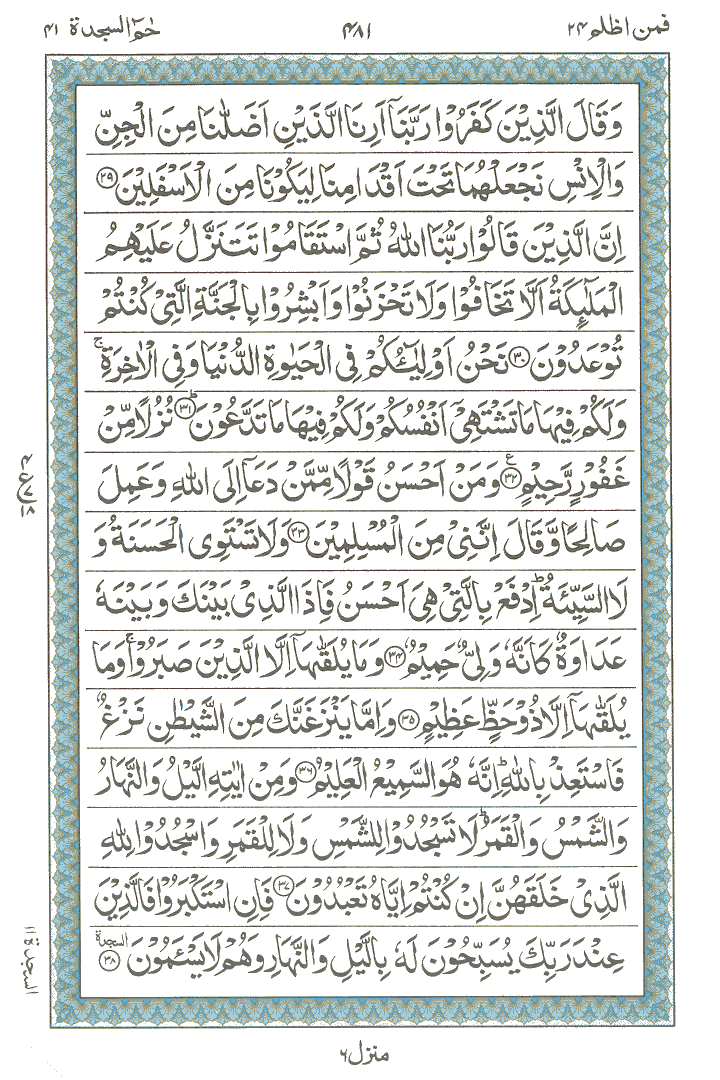 فمن اظلم ٢٤
٤٨١
حٰمٓ السجدة ٤١
وَقَالَ الَّذِيْنَ كَفَرُوْا رَبَّنَاۤ اَرِنَا الَّذَيْنِ اَضَلّٰنَا مِنَ الْجِنِّ
وَالْاِنْسِ نَجْعَلْهُمَا تَحْتَ اَقْدَامِنَا لِيَكُوْنَا مِنَ الْاَسْفَلِيْنَ ﴿٢٩﴾
اِنَّ الَّذِيْنَ قَالُوْا رَبُّنَا اللّٰهُ ثُمَّ اسْتَقَامُوْا تَتَنَزَّلُ عَلَيْهِمُ
الْمَلٰٓئِكَةُ اَلَّا تَخَافُوْا وَلَا تَحْزَنُوْا وَاَبْشِرُوْا بِالْجَنَّةِ الَّتِيْ كُنْتُمْ
تُوْعَدُوْنَ ﴿٣٠﴾ نَحْنُ اَوْلِيٰٓـؤُكُمْ فِى الْحَيٰوةِ الدُّنْيَا وَفِى الْاٰخِرَةِ ۚ
وَلَكُمْ فِيْهَا مَا تَشْتَهِيْۤ اَنْفُسُكُمْ وَلَكُمْ فِيْهَا مَا تَدَّعُوْنَ ؕ﴿٣١﴾ نُزُلًا مِّنْ
غَفُوْرٍ رَّحِيْمٍ ﴿٣٢﴾ ع وَمَنْ اَحْسَنُ قَوْلًا مِّمَّنْ دَعَاۤ اِلَى اللّٰهِ وَعَمِلَ
صَالِحًا وَّقَالَ اِنَّنِيْ مِنَ الْمُسْلِمِيْنَ ﴿٣٣﴾ وَلَا تَسْتَوِى الْحَسَنَةُ وَ
لَا السَّيِّئَةُ ؕ اِدْفَعْ بِالَّتِيْ هِيَ اَحْسَنُ فَاِذَا الَّذِيْ بَيْنَكَ وَبَيْنَهٗ
عَدَاوَةٌ كَاَنَّهٗ وَلِيٌّ حَمِيْمٌ ﴿٣٤﴾ وَمَا يُلَقّٰىهَاۤ اِلَّا الَّذِيْنَ صَبَرُوْا ۚ وَمَا
يُلَقّٰىهَاۤ اِلَّا ذُوْ حَظٍّ عَظِيْمٍ ﴿٣٥﴾ وَاِمَّا يَنْزَغَنَّكَ مِنَ الشَّيْطٰنِ نَزْغٌ
فَاسْتَعِذْ بِاللّٰهِ ؕ اِنَّهٗ هُوَ السَّمِيْعُ الْعَلِيْمُ ﴿٣٦﴾ وَمِنْ اٰيٰتِهِ الَّيْلُ وَالنَّهَارُ
وَالشَّمْسُ وَالْقَمَرُ ؕ لَا تَسْجُدُوْا لِلشَّمْسِ وَلَا لِلْقَمَرِ وَاسْجُدُوْا لِلّٰهِ
الَّذِيْ خَلَقَهُنَّ اِنْ كُنْتُمْ اِيَّاهُ تَعْبُدُوْنَ ﴿٣٧﴾ فَاِنِ اسْتَكْبَرُوْا فَالَّذِيْنَ
عِنْدَ رَبِّكَ يُسَبِّحُوْنَ لَهٗ بِالَّيْلِ وَالنَّهَارِ وَهُمْ لَا يَسْـَٔمُوْنَ ﴿٣٨﴾ السجدة
السجدة ١١
منزل ٦